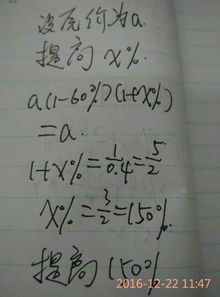 设原价为a.
提高x%.
a(1-60%)(1+x%)
=a.
1+x%=1/0.4=5/2
x%=3/2=150%.
提高150%
2016-12-22 11:47